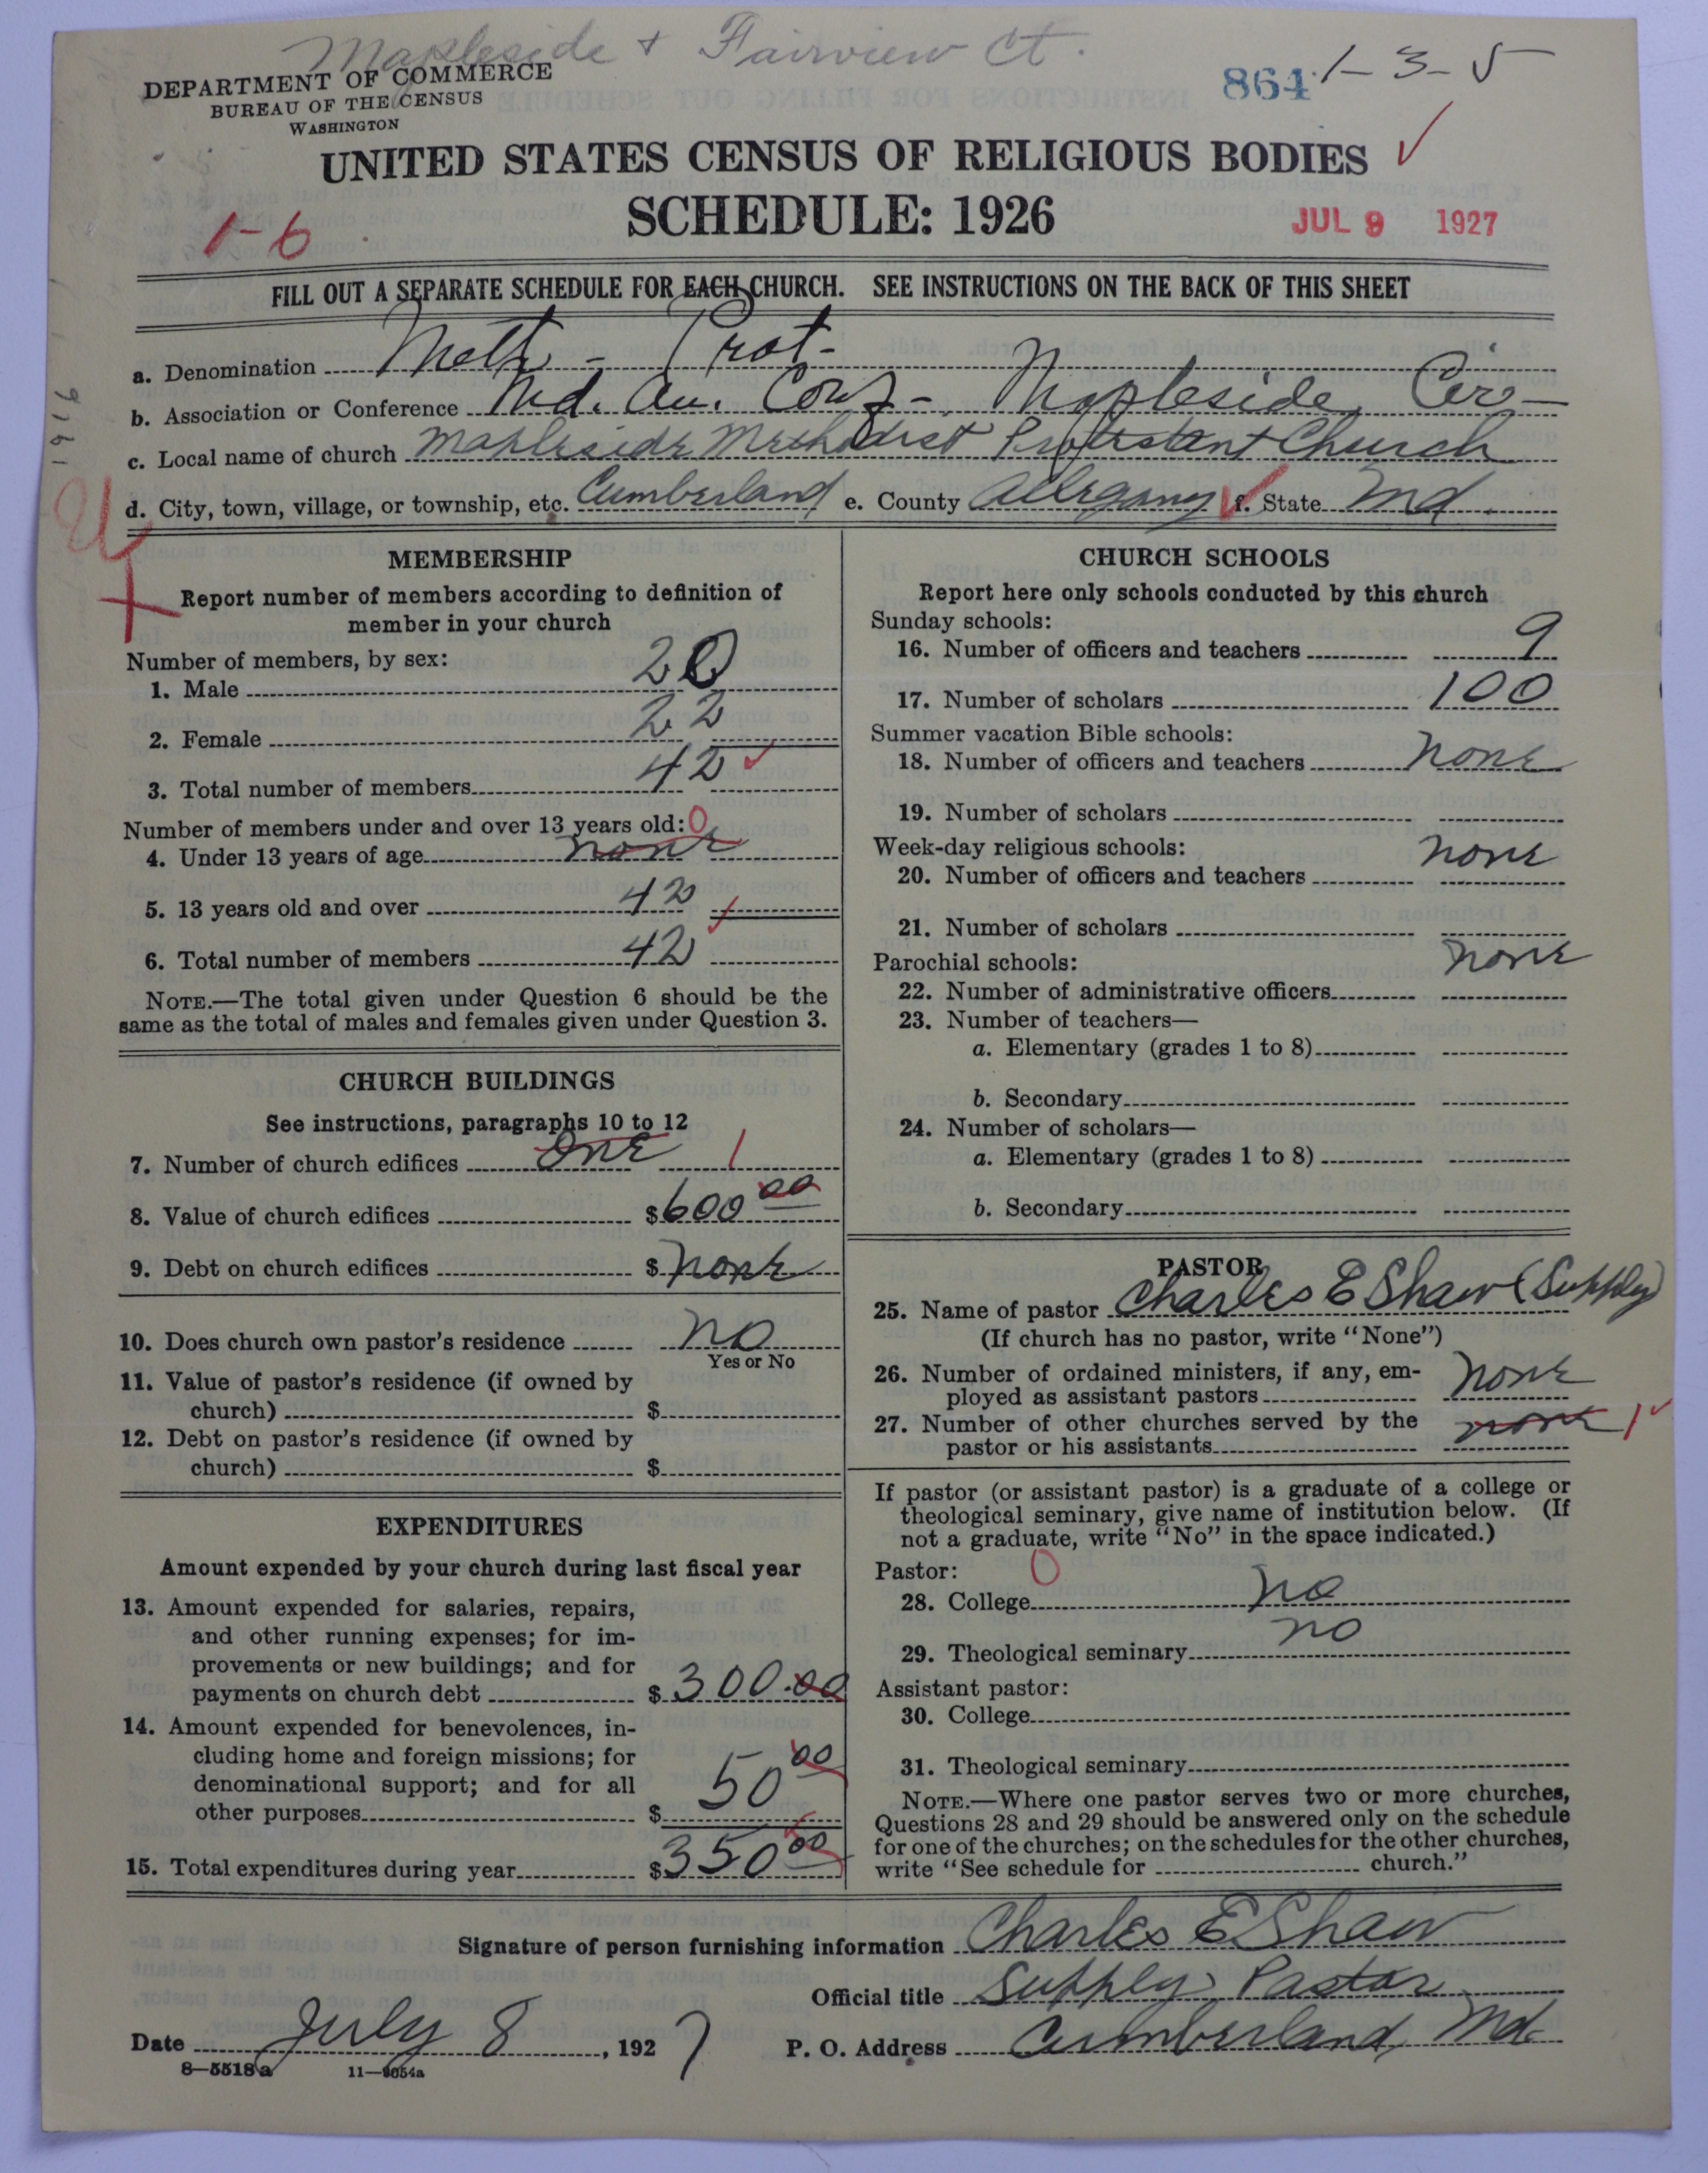 Mapleside + Fairview Ct.
DEPARTMENT OF COMMERCE
BUREAU OF THE CENSUS
WASHINGTON
864 1-3-5
UNITED STATES CENSUS OF RELIGIOUS BODIES
SCHEDULE: 1926
1-6
JUL 9 1927
FILL OUT A SEPARATE SCHEDULE FOR EACH CHURCH. SEE INSTRUCTIONS ON THE BACK OF THIS SHEET
a. Denomination Meth - Prot-
b. Association or Conference Md. An. Conf-. Mapleside Cir-
c. Local name of church Mapleside Methodist Protestant Church
d. City, town, village, or township, etc. Cumberland e. County Allegany f. State Md.
MEMBERSHIP
Report number of members according to definition of
member in your church
Number of members, by sex:
1. Male 20
2. Female 22
3. Total number of members 42
Number of members under and over 13 years old: 0
4. Under 13 years of age none
5. 13 years old and over 42
6. Total number of members 42
NOTE.—The total given under Question 6 should be the
same as the total of males and females given under Question 3.
CHURCH BUILDINGS
See instructions, paragraphs 10 to 12
7. Number of church edifices one 1
8. Value of church edifices $600 00
9. Debt on church edifices $ none
10. Does church own pastor's residence no
Yes or No
11. Value of pastor's residence (if owned by
church) $
12. Debt on pastor's residence (if owned by
church) $
EXPENDITURES
Amount expended by your church during last fiscal year
13. Amount expended for salaries, repairs,
and other running expenses; for im-
provements or new buildings; and for
payments on church debt $ 300.00
14. Amount expended for benevolences, in-
cluding home and foreign missions; for
denominational support; and for all
other purposes $ 50 00
15. Total expenditures during year $350 00
CHURCH SCHOOLS
Report here only schools conducted by this church
Sunday schools:
16. Number of officers and teachers 9
17. Number of scholars 100
Summer vacation Bible schools:
18. Number of officers and teachers none
19. Number of scholars
Week-day religious schools:
20. Number of officers and teachers none
21. Number of scholars
Parochial schools:
22. Number of administrative officers none
23. Number of teachers—
a. Elementary (grades 1 to 8)
b. Secondary
24. Number of scholars—
a. Elementary (grades 1 to 8)
b. Secondary
PASTOR
25. Name of pastor Charles E Shaw (Supply)
(If church has no pastor, write "None")
26. Number of ordained ministers, if any, em-
ployed as assistant pastors none
27. Number of other churches served by the
pastor or his assistants none 1
If pastor (or assistant pastor) is a graduate of a college or
theological seminary, give name of institution below. (If
not a graduate, write "No" in the space indicated.)
Pastor: 0
28. College no
29. Theological seminary no
Assistant pastor:
30. College
31. Theological seminary
NOTE.—Where one pastor serves two or more churches,
Questions 28 and 29 should be answered only on the schedule
for one of the churches; on the schedules for the other churches,
write "See schedule for church."
Signature of person furnishing information Charles E Shaw
Official title Supply Pastor
Date July 8, 1927 P. O. Address Cumberland, Md.
8—5518a 11—9654a